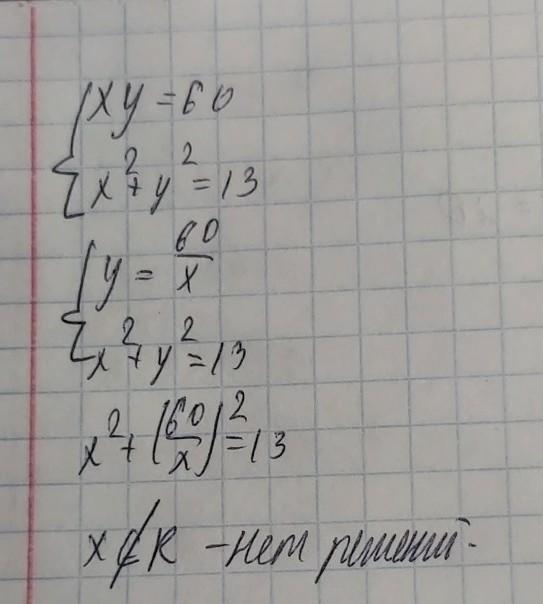 { xy = 60
x² + y² = 13
{ y = 60/x
x² + y² = 13
x² + (60/x)² = 13
x ∉ R - нет решений.